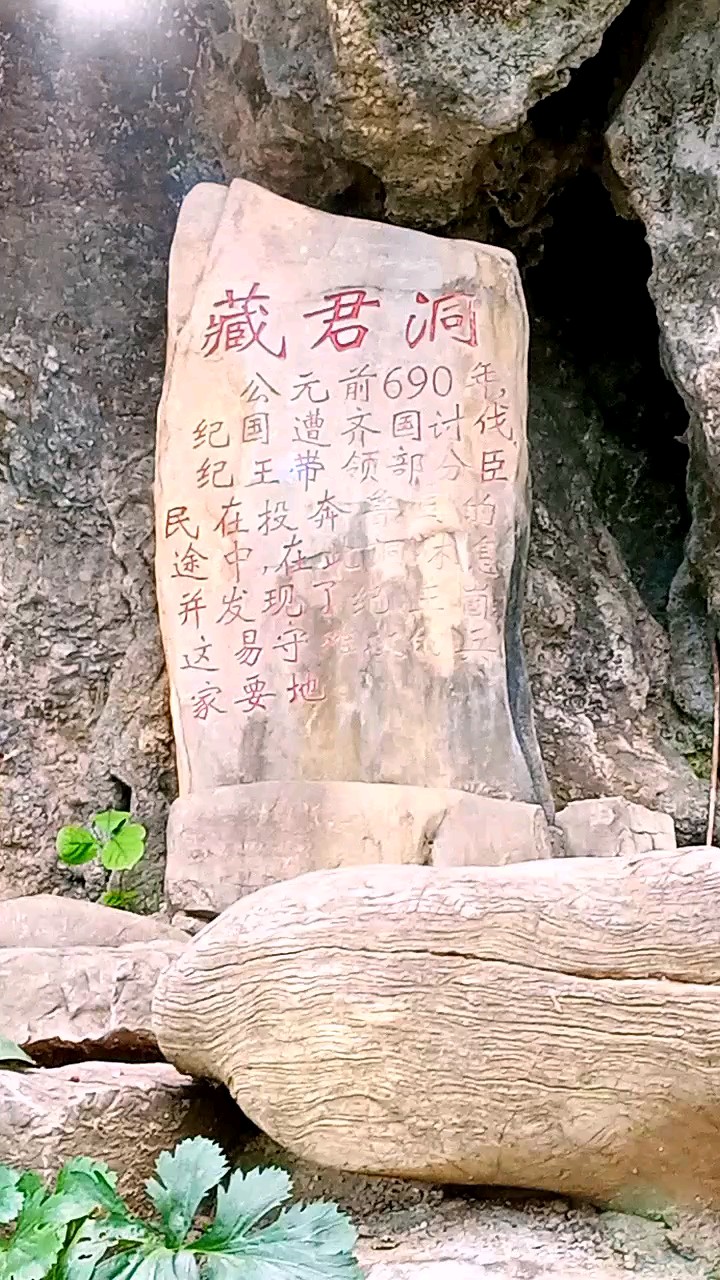 藏君洞
公元前690年,
纪国遭齐国讨伐,
纪王带领部分臣
民在投奔鲁国的
途中,在此洞休息
并发现了纪王崮
这易守难攻的王
家要地